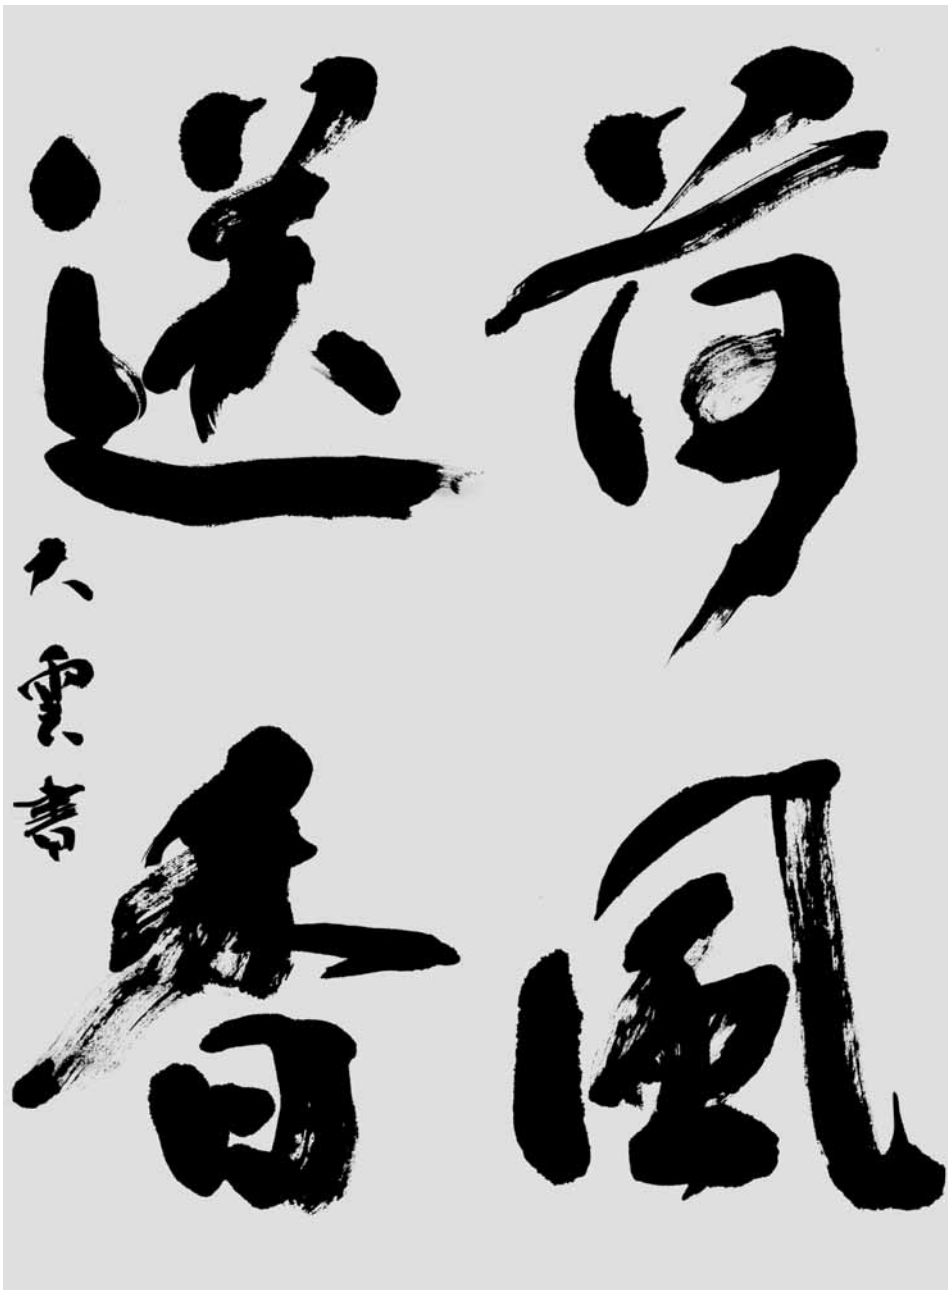 荷风
送香
大雲書